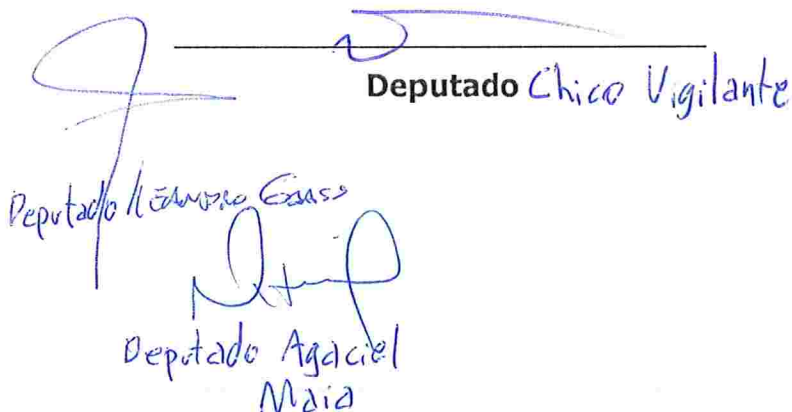 Deputado Chico Vigilante
Deputado Leandro Grass
Deputado Agaciel
Maia